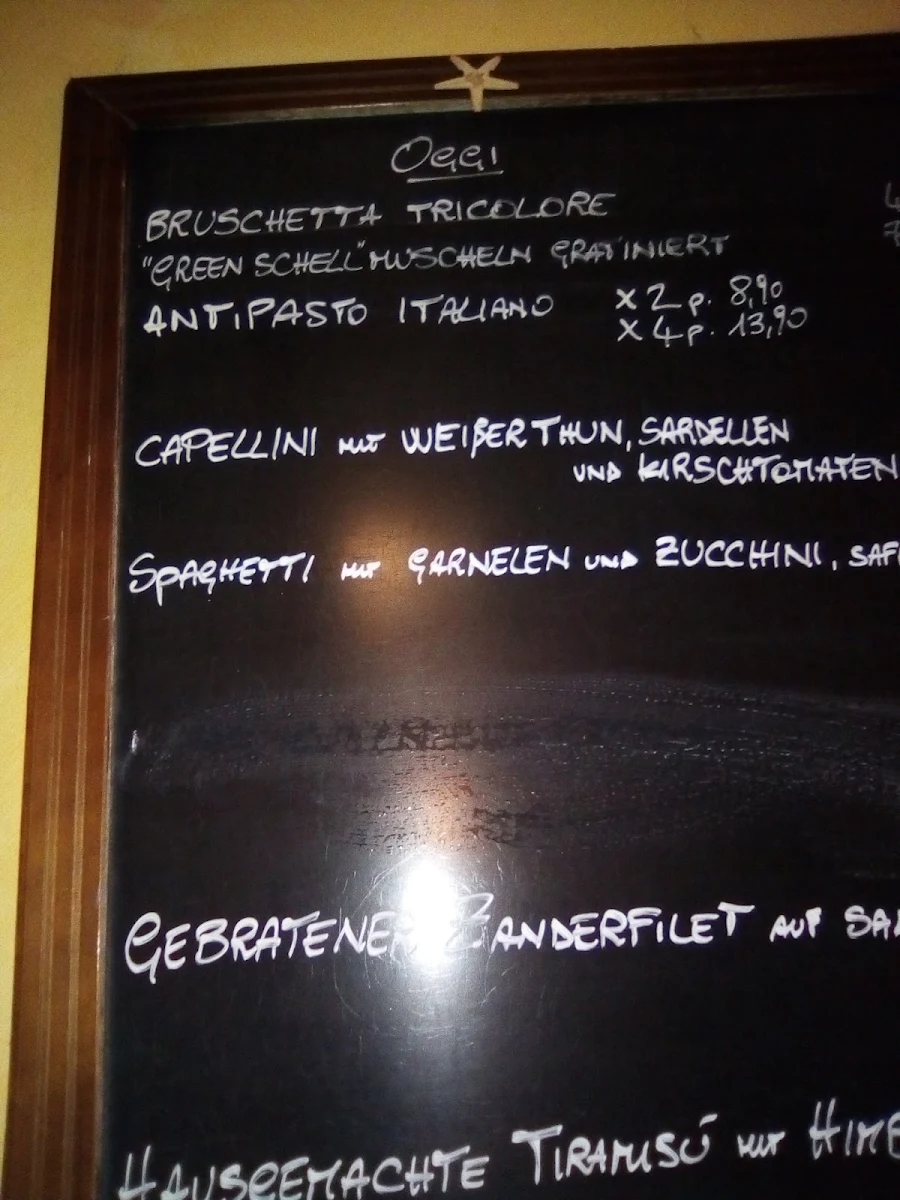 OGGI
BRUSCHETTA TRICOLORE
"GREEN SCHELL" MUSCHELN GRATINIERT
ANTIPASTO ITALIANO x 2 p. 8,90
x 4 p. 13,90
CAPELLINI mit WEIßER THUN, SARDELLEN
UND KIRSCHTOMATEN
SPAGHETTI mit GARNELEN UND ZUCCHINI,
GEBRATENER ZANDERFILET AUF
HAUSGEMACHTE TIRAMISÚ mit